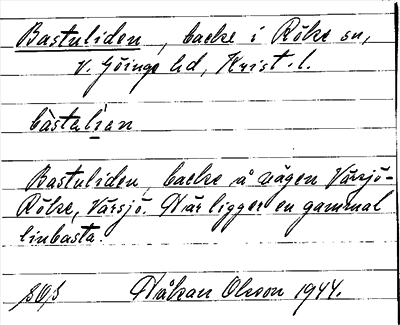 Bastuliden, backe i Röke sn,
V. Göinge hd, Krist. l.
bàstali̱an
Bastuliden, backe å vägen Värsjö-
Röke, Värsjö. Där ligger en gammal
linbasta.
Håkan Olsson 1944.